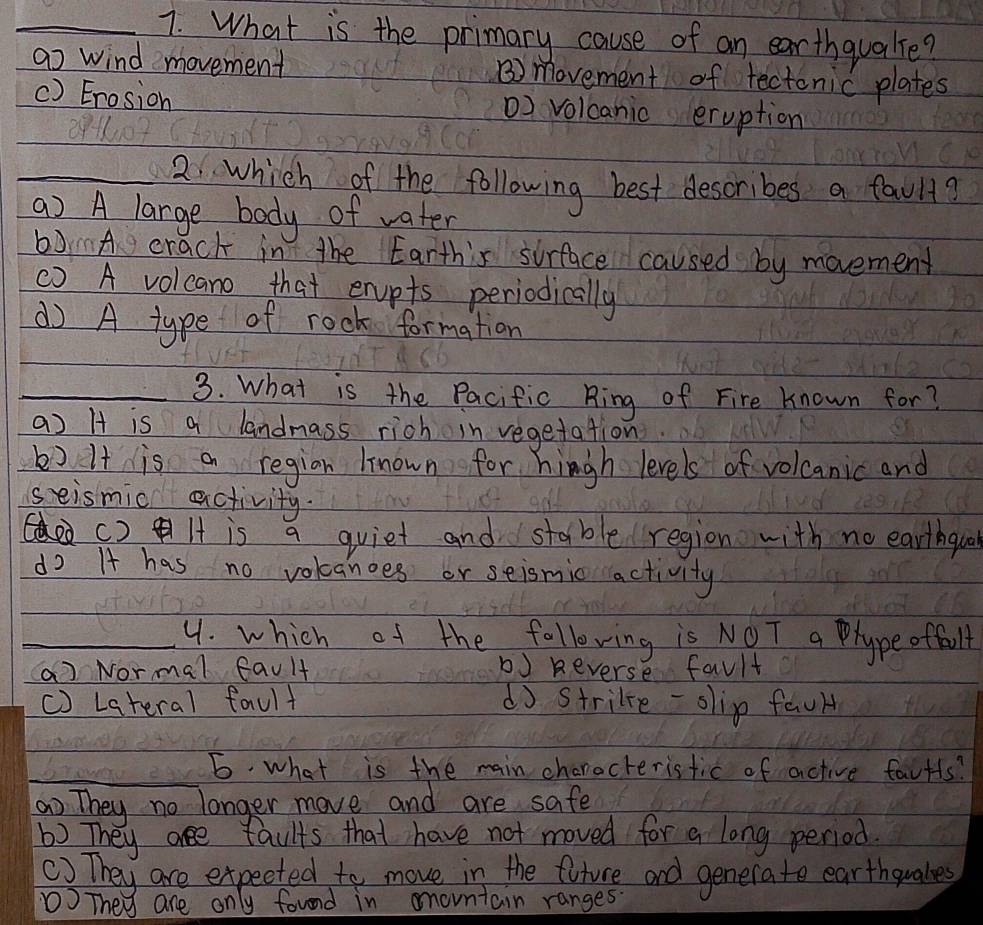 _______ 1. What is the primary cause of an earthquake?
a) Wind movement B) Movement of tectonic plates
c) Erosion D) volcanic eruption
_______ 2. Which of the following best describes a fault?
a) A large body of water
b) A crack in the Earth's surface caused by movement
c) A volcano that erupts periodically
d) A type of rock formation
_______ 3. What is the Pacific Ring of Fire known for?
a) It is a landmass rich in vegetation.
b) It is a region known for hingh levels of volcanic and
seismic activity.
c) It is a quiet and stable region with no earthquak
d) It has no volcanoes or seismic activity
_______ 4. Which of the following is NOT a type of fault
a) Normal fault b) Reverse fault
c) Lateral fault d) Strike-slip fault
_______ 5. What is the main characteristic of active faults?
a) They no longer move and are safe
b) They are faults that have not moved for a long period.
c) They are expected to move in the future and generate earthquakes
D) They are only found in mountain ranges.